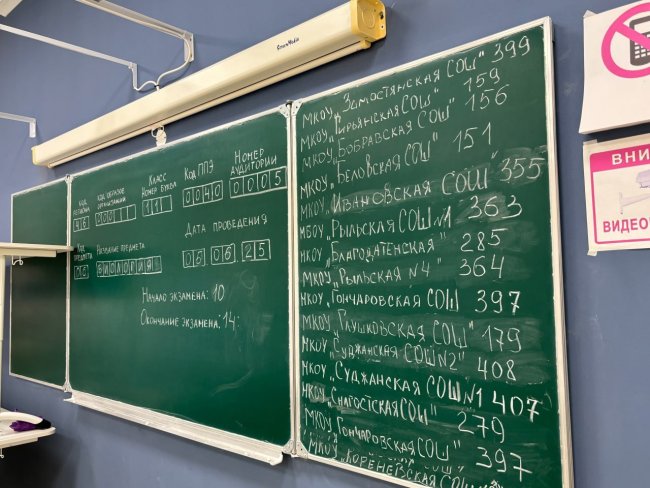 GreenMedia
КОД РЕГИОНА
КОД ОБРАЗОВ. ОРГАНИЗАЦИИ
КЛАСС
НОМЕР БУКВА
КОД ППЭ
НОМЕР АУДИТОРИИ
46
111
0040
0005
КОД ПРЕДМЕТА
НАЗВАНИЕ ПРЕДМЕТА
ДАТА ПРОВЕДЕНИЯ
БИОЛОГИЯ
05 06 25
НАЧАЛО ЭКЗАМЕНА: 10
ОКОНЧАНИЕ ЭКЗАМЕНА: 14:
МКОУ „Замостянская СОШ" 399
МКОУ „Гирьянская СОШ" 159
МКОУ „Бобравская СОШ" 156
МКОУ „Беловская СОШ" 151
МКОУ „Ивановская СОШ" 355
МБОУ „Рыльская СОШ №1" 363
МКОУ „Благодатенская" 285
МКОУ „Рыльская №4" 364
МКОУ „Гончаровская СОШ 397
МКОУ „Глушковская СОШ" 179
МКОУ „Суджанская СОШ №2" 408
МКОУ „Суджанская СОШ №1 407
МКОУ „Снагостская СОШ" 279
МКОУ „Гончаровская СОШ" 397
МКОУ „Кореневская СОШ
ВНИ
ВИДЕО